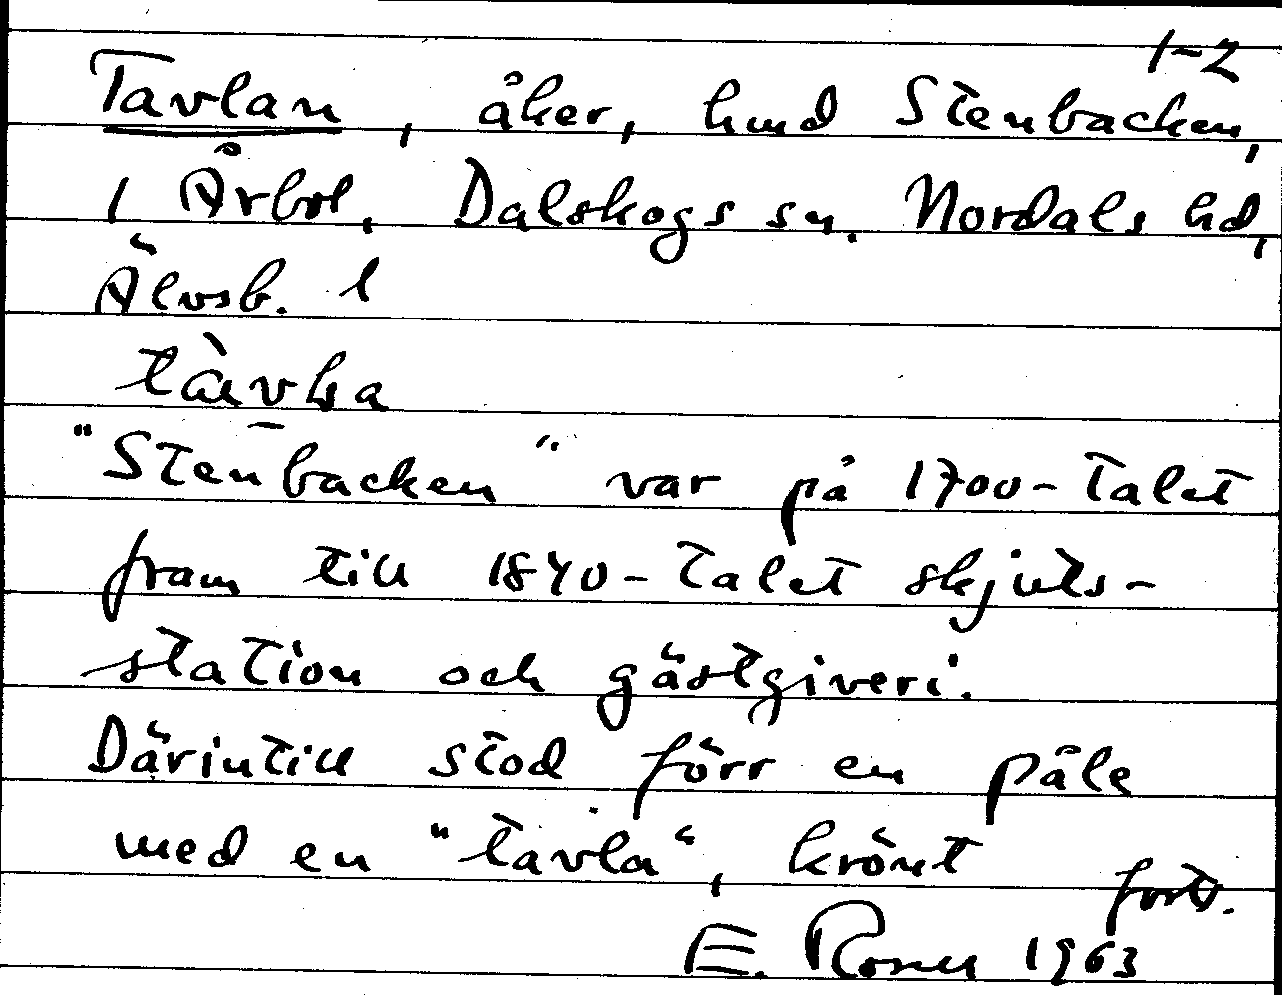 1-2
Tavlan, åker, hmd Stenbacken,
1 Årbol, Dalskogs sn. Nordals hd,
Älvsb. l
"Stenbacken" var på 1700-talet
fram till 1840-talet skjuts-
station och gästgiveri.
Därintill stod förr en påle
med en "tavla", krönt
forts.
E. Rosell 1963